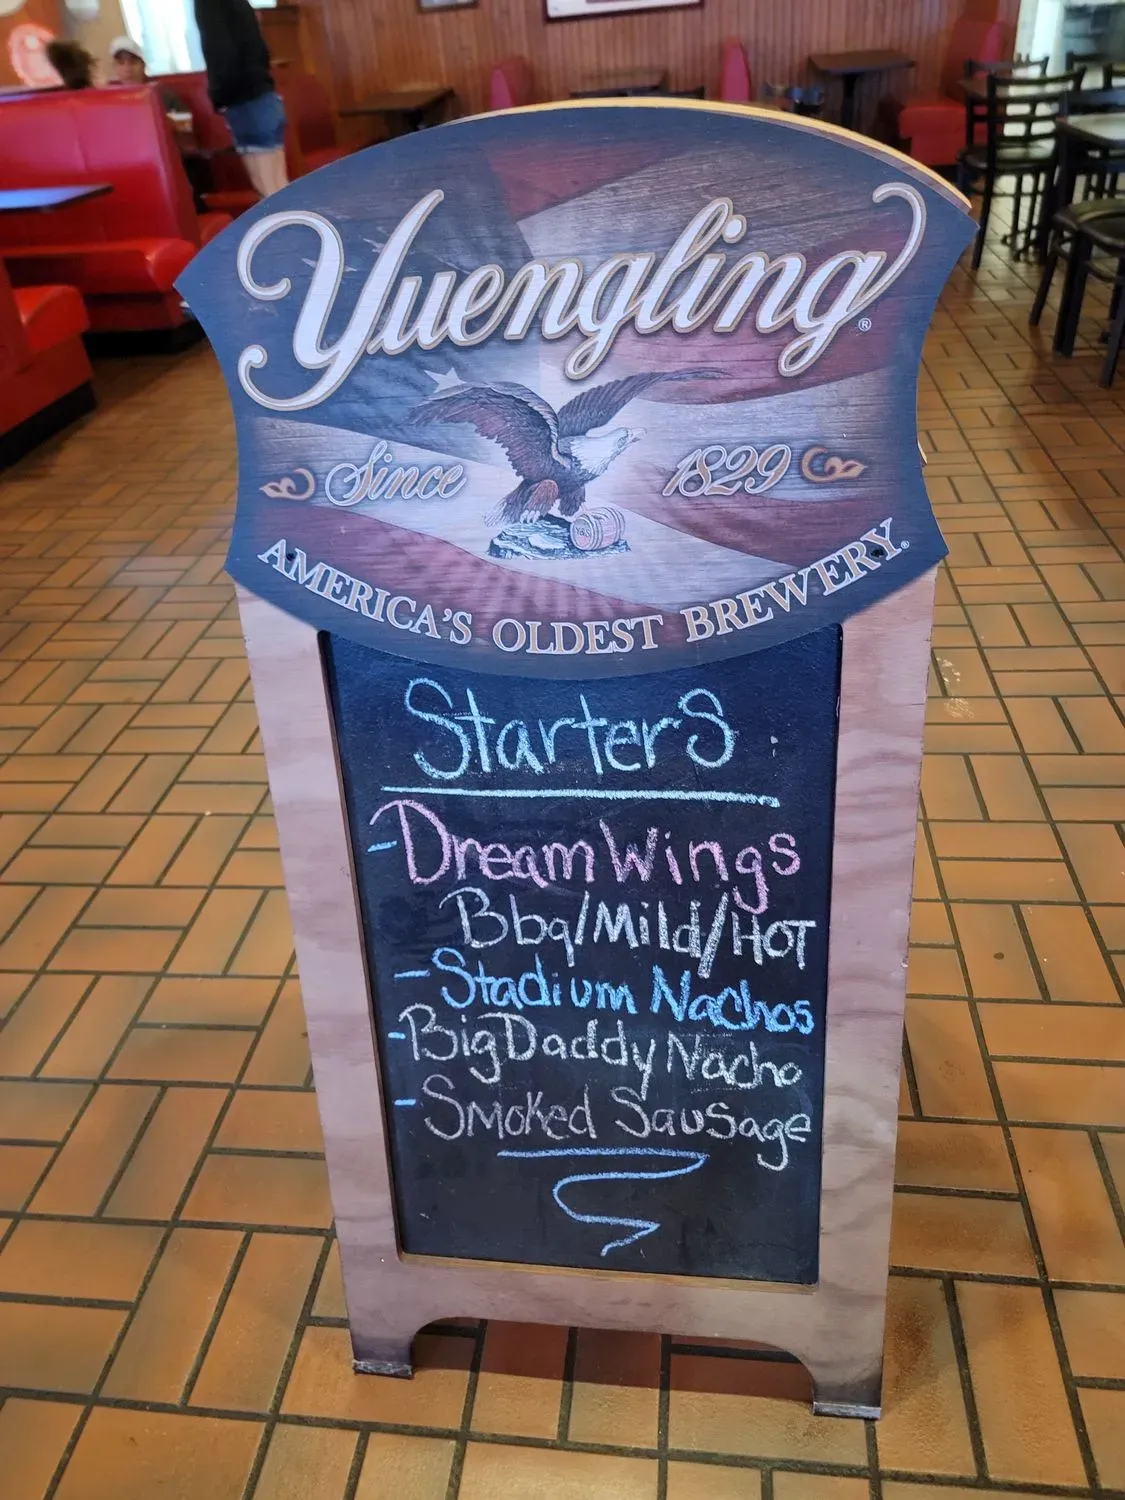 Yuengling®
Since 1829
AMERICA'S OLDEST BREWERY®
Starters
- Dream Wings
Bbq/Mild/HOT
- Stadium Nachos
- Big Daddy Nacho
- Smoked Sausage